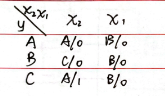 X₂X₁ X₂ X₁
y
A A/0 B/0
B C/0 B/0
C A/1 B/0